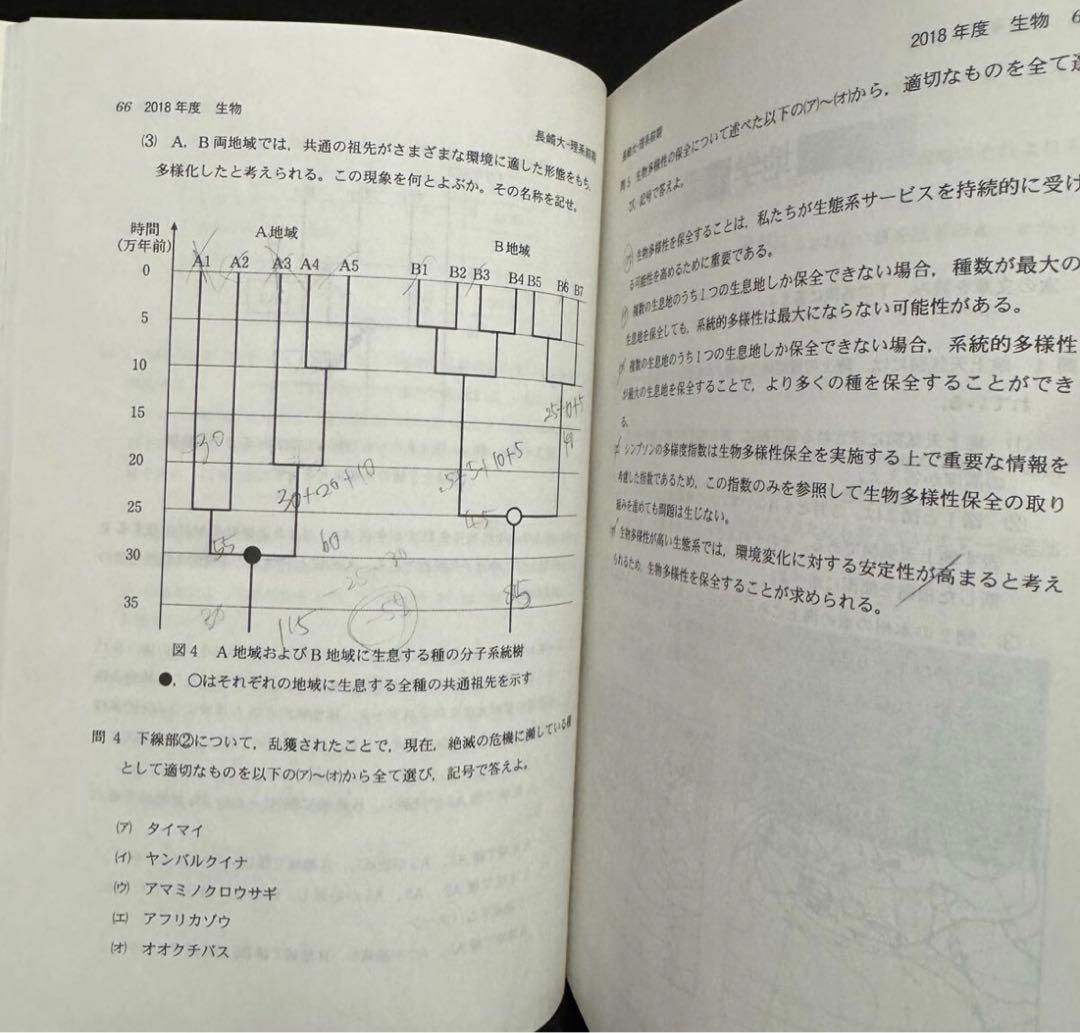 66 2018年度 生物
長崎大-理系前期
(3) A,B両地域では,共通の祖先がさまざまな環境に適した形態をもち,
多様化したと考えられる。この現象を何とよぶか。その名称を記せ。
時間
(万年前)
A地域
B地域
A1 A2 A3 A4 A5
B1 B2 B3 B4 B5 B6 B7
0
5
10
15
20
25
30
35
30
30+20+10
60
55
115
25+10+5
45
85
図4 A地域およびB地域に生息する種の分子系統樹
●,○はそれぞれの地域に生息する全種の共通祖先を示す
問4 下線部②について,乱獲されたことで,現在,絶滅の危機に瀕している種
として適切なものを以下の(ア)~(オ)から全て選び,記号で答えよ。
(ア) タイマイ
(イ) ヤンバルクイナ
(ウ) アマミノクロウサギ
(エ) アフリカゾウ
(オ) オオクチバス
2018年度 生物
長崎大-理系前期
問5 生物多様性の保全について述べた以下の(ア)~(オ)から,適切なものを全て選
び,記号で答えよ。
(ア) 生物多様性を保全することは,私たちが生態系サービスを持続的に受け
る可能性を高めるために重要である。
(イ) 複数の生息地のうち1つの生息地しか保全できない場合,種数が最大の
生息地を保全しても,系統的多様性は最大にならない可能性がある。
(ウ) 複数の生息地のうち1つの生息地しか保全できない場合,系統的多様性
が最大の生息地を保全することで,より多くの種を保全することができ
る。
(エ) シンプソンの多様度指数は生物多様性保全を実施する上で重要な情報を
考慮した指数であるため,この指数のみを参照して生物多様性保全の取り
組みを進めても問題は生じない。
(オ) 生物多様性が高い生態系では,環境変化に対する安定性が高まると考え
られるため,生物多様性を保全することが求められる。